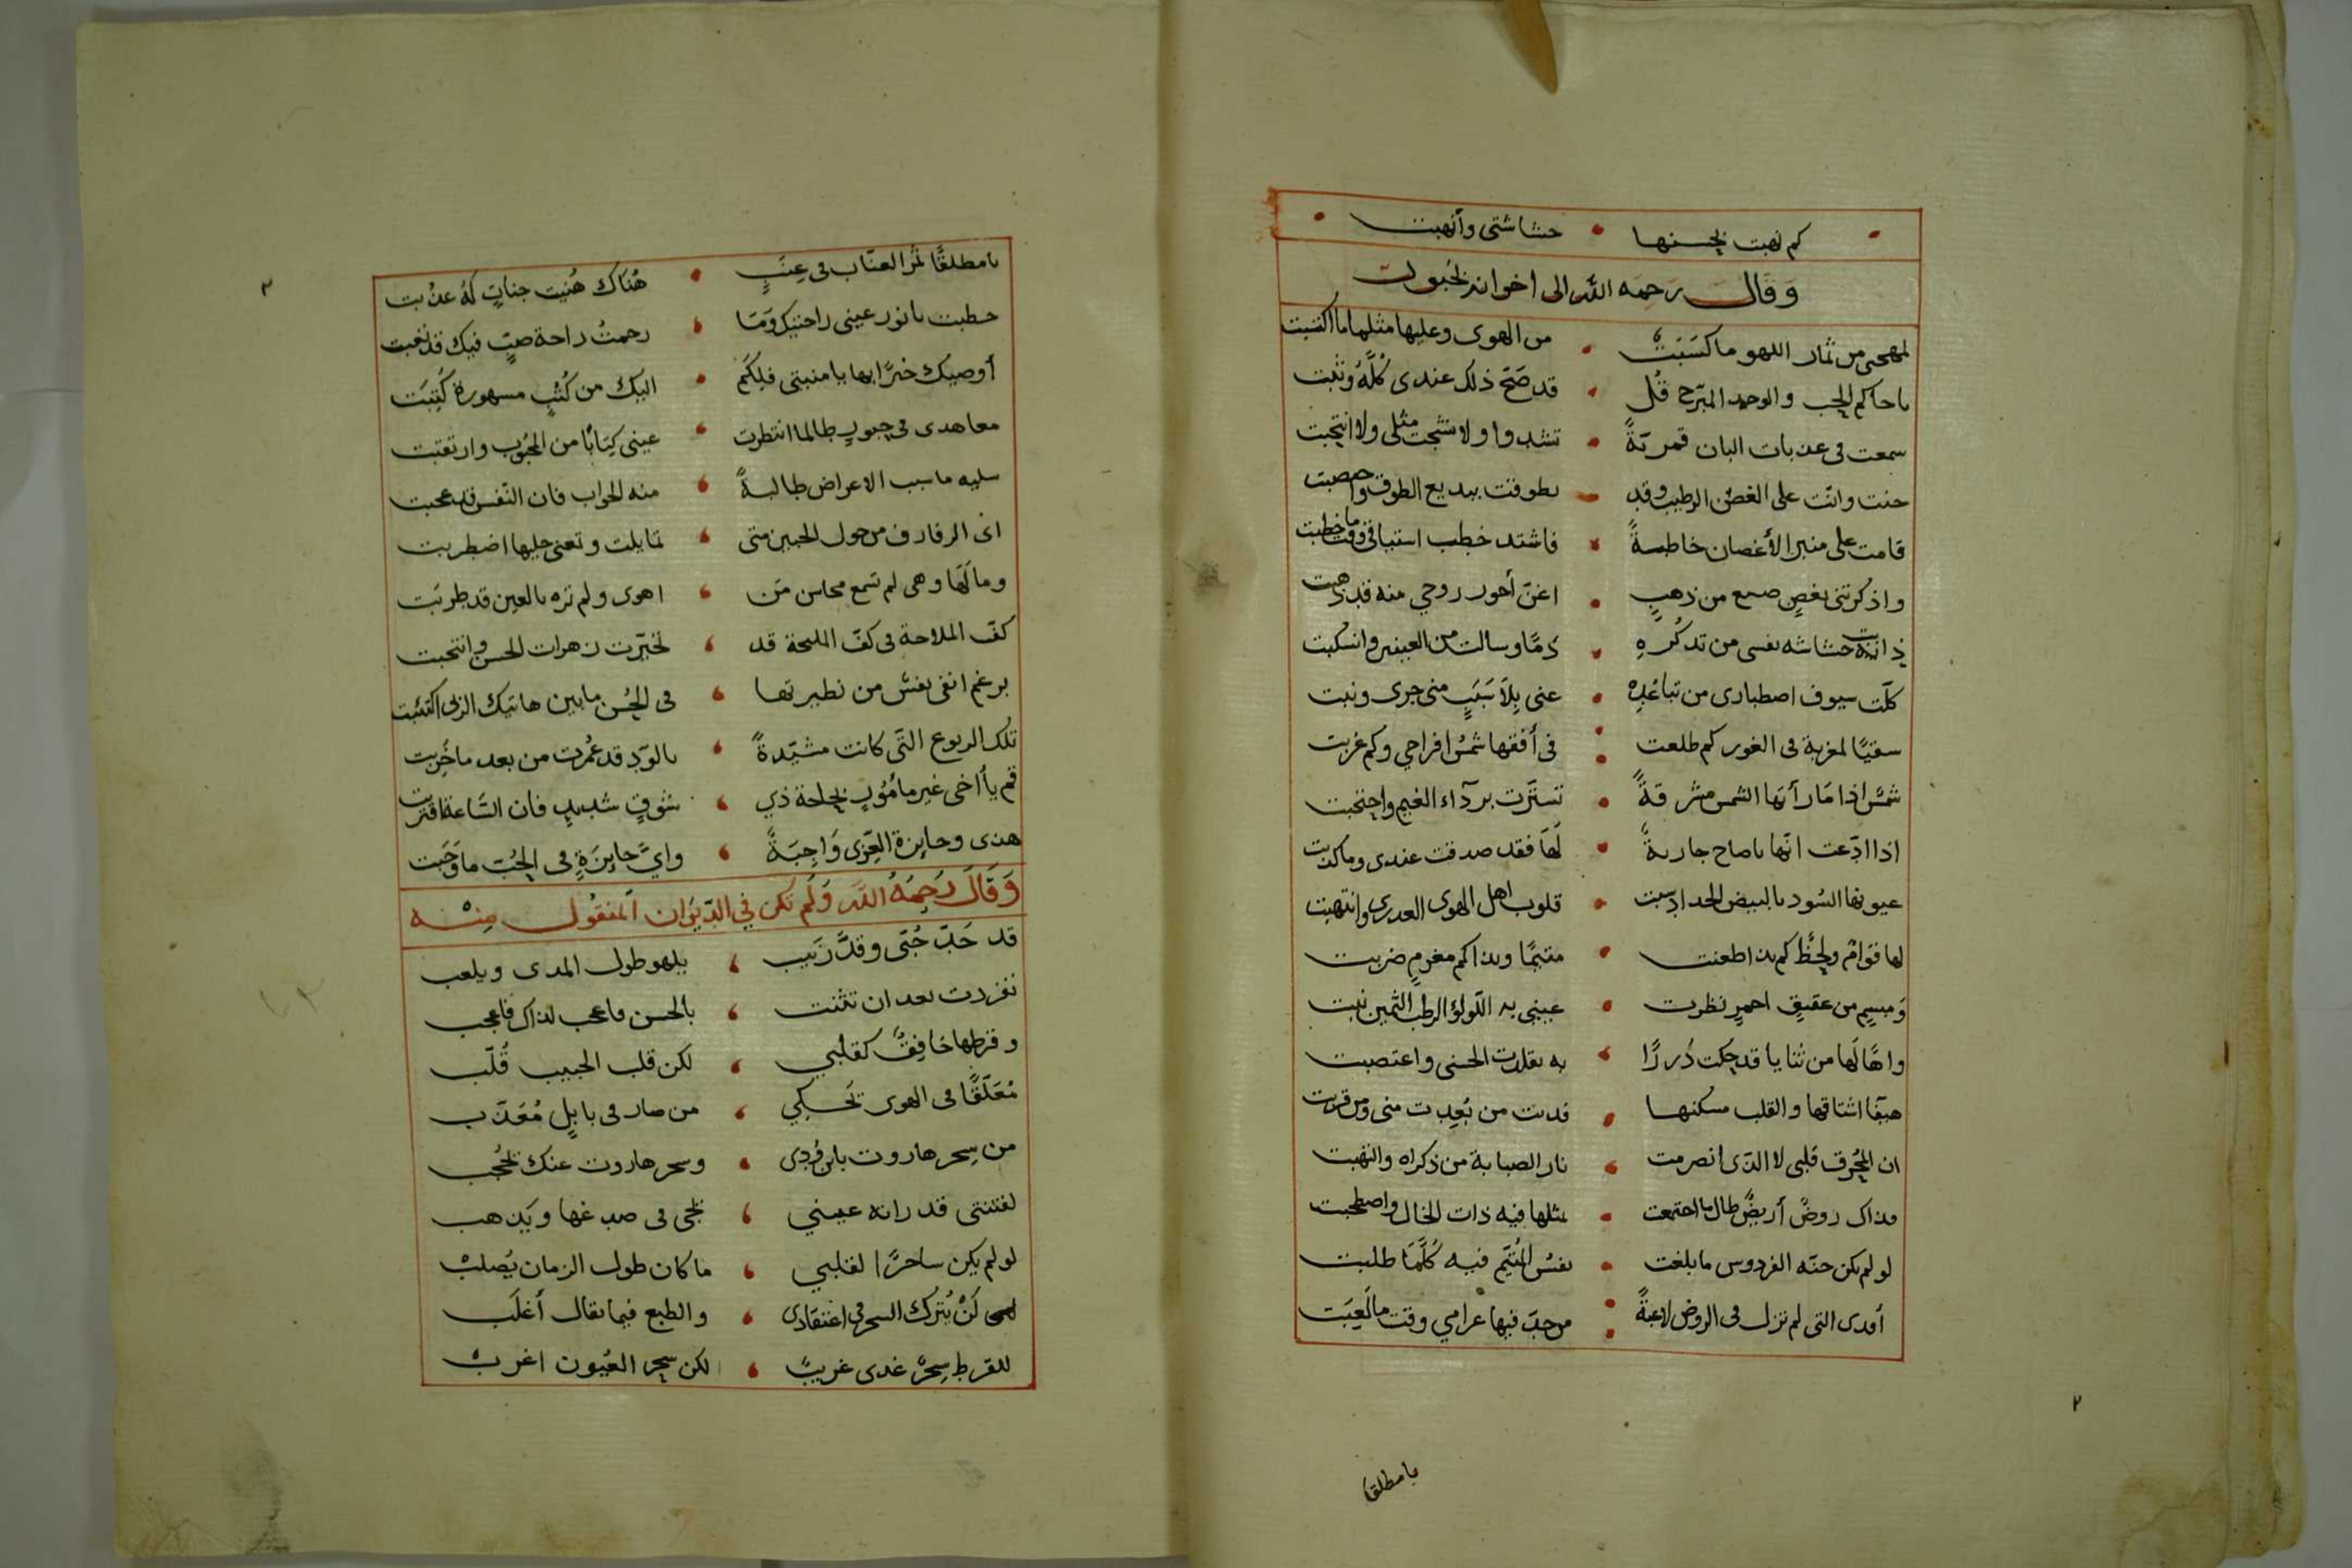 كم نهبت بحسنها • حشاشتي وأنهبت
وَقَالَ رَحمَه اللّه الى اخوانه بجبور
لمهجتي من ثمار اللهو ما كسَبَتْ • من الهوى وعليها مثلها ما اكتسبت
يا حاكم الحب والوجد المبرّح قُل • قد صَحّ ذلك عندى كُلُّهُ وثبت
سمعت فى عذبات البان قمريّةً • تشدوا ولا شجت مثلى ولا انتحبت
حنت وانّت على الغصن الرطيب وقد • تطوقت ببديع الطوق
قامت على منبر الأغصان خاطبةً • فاشتد خطب اشتياقى وقت ما خطبت
واذكرتنى بغصنٍ صيغ من ذهبٍ • اغنّ أحور روحي منه قد
ذابت حشاشه نفسى من تذكُرهِ • دمًا وسالت من العينين وانسكبت
كلّت سيوف اصطبارى من تباعُدِهْ • عنى بِلاَ سَبَبٍ منى جرى ونبت
سقيًا لمغربة فى الغور كم طلعت • فى أفقها شمسُ افراحي وكم غربت
شمسٌ اذا مَا رأتها الشمس مشرقةً • تستّرت برآداء الغيم واحتجبت
اذا ادّعت انّها يا صاح جاريةٌ • لَهَا فقد صدقت عندى وما كذبت
عيونها السُود بالبيض الحداد سبت • قلوب اهل الهوى العذرى وانتهبت
لها قوامٌ ولحظٌ كم بذا طعنت • متيمًا وبذا كم مغرمٍ ضربت
وَمبسِمٍ من عقيقٍ احمرٍ نظرت • عيني به اللّولؤ الرطب الثّمين نبت
واهًا لَها من ثنايا قد حكت دُررًا • به تقلدت الحسنى واعتصبت
هيفا اشتاقها والقلب مسكنها • فديت من بَعِدت منى ومن قربت
ان المحُرق قلبى لا الّذى انصرمت • نار الصبابة من ذكراه والتهبت
وذاك روضٌ أريضٌ طال ما اجتمعت • بمثلها فيه ذات الخال واصطحبت
لو لم يكن جنّه الفردوس ما بلغت • نفسُ المُتيّم فيه كُلّمَا طلبت
أفدى التى لم تزل فى الروض لاعبةً • من حبّ فيها غرامي وقت ما لَعِبَت
يا مطلقا
٢
٣
يا مطلقًا ثمر العنّاب فى عِنَبٍ • هُناك هُنيت جناتٍ لهُ عذبت
خطبت يا نور عينى راحتيك وَمَا • رحمتُ راحة صبٍّ فيك قد تعبت
أوصيك خيرًا بها يا منيتى فلِكَم • اليك من كُتْبٍ مسهورةٌ كُتِبَت
معاهدى فى جبورٍ طالما انتظرت • عينى كِتَابًا من المحبُوب وارتقبت
سليه ما سبب الاعراض طالبةً • منه الجواب فان النّفس قد عجبت
ارى الرفارف من حول الجبين متى • تمايلت وتعنى حليها اضطربت
وما لَهَا وهى لم تسمع محاسن مَن • اهوى ولم تره بالعين قد طربت
كفّ الملاحة فى كفّ المليحة قد • تخيّرت زهرات الحسن وانتخبت
برغم انفى نفسٌ من نظيرتها • فى الحُسن ما بين هاتيك الربى اكتئبت
تلك الربوع التّى كانت مشيّدةً • بالوّدِ قد عُمرت من بعد ما خُرِبت
قم يا أخى غير مأمُورٍ بحاجة ذي • شوقٍ شديدٍ فان السّاعة اقتربت
هذى وجايزة العِزّى وَاجِبَةً • وايُّ جايزَةٍ فى الحُبّ ما وَجَبت
وَقَالَ رَحِمَهُ اللَّه وَلَم تكن فِي الدّيوَان المنقُول مِنْه
قد جَدّ حُبّى وقدّ زَينب • بلهو طول المدى ويلعب
تفردت بعد ان تثنت • بالحسن فاعجب لذاك فاعجب
وقرطها خافِقٌ كقلبي • لكن قلب الحبيب قُلّب
مُعَلَّقًا فى الهوى تَحكي • من صار فى بابِلٍ مُعَذّب
من سِحر هاروت • وسحر هاروت عنك يحُجب
لفتنتى قد راته عيني • يحيى فى صدغها ويَذهب
لو لم يكن ساحرًا لقلبي • ما كان طول الزمان يُصلبْ
لَنْ يُترك السحر فى اعتقَادى • والطبع فيما يقال أغلَب
للقرط سِحرٌ غدى غريبًا • لكن سحر العيُون اغربْ